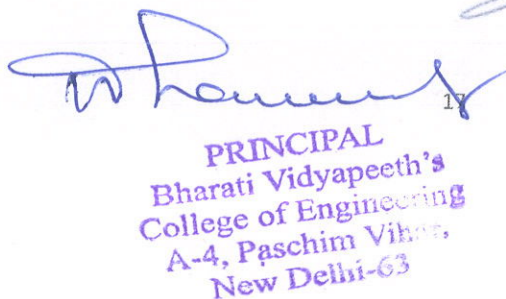 17
PRINCIPAL
Bharati Vidyapeeth's
College of Engineering
A-4, Paschim Vihar,
New Delhi-63